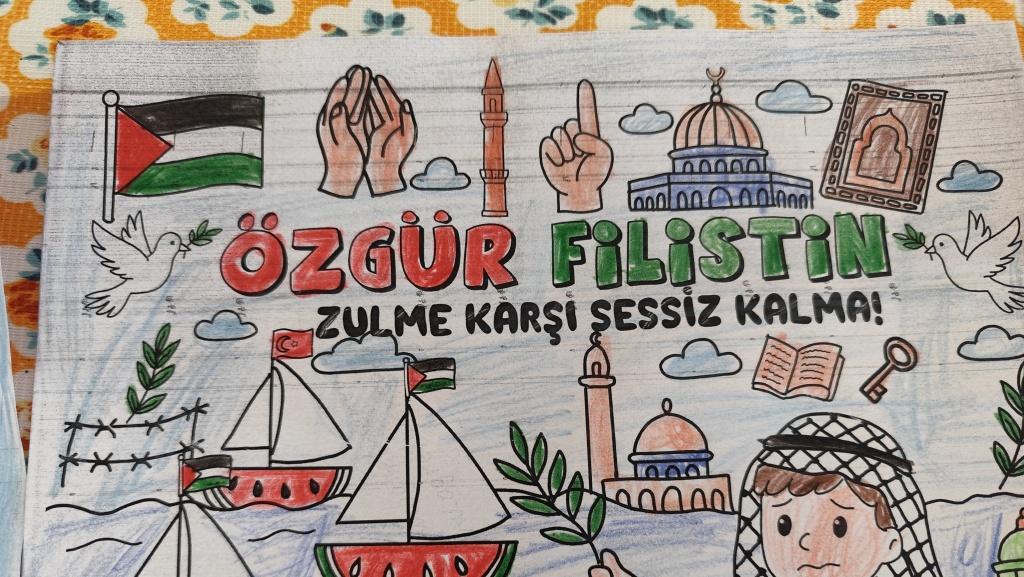 ÖZGÜR FİLİSTİN
ZULME KARŞI SESSİZ KALMA!